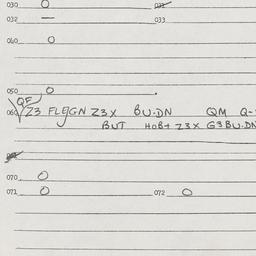 030 O 031
032 — 033
040 O
050 O
QF
060 Z3 FLEJGN Z3X BU-DN QM Q-
BUT HOB+ Z3X G3BU-DN
070 O
071 O 072 O